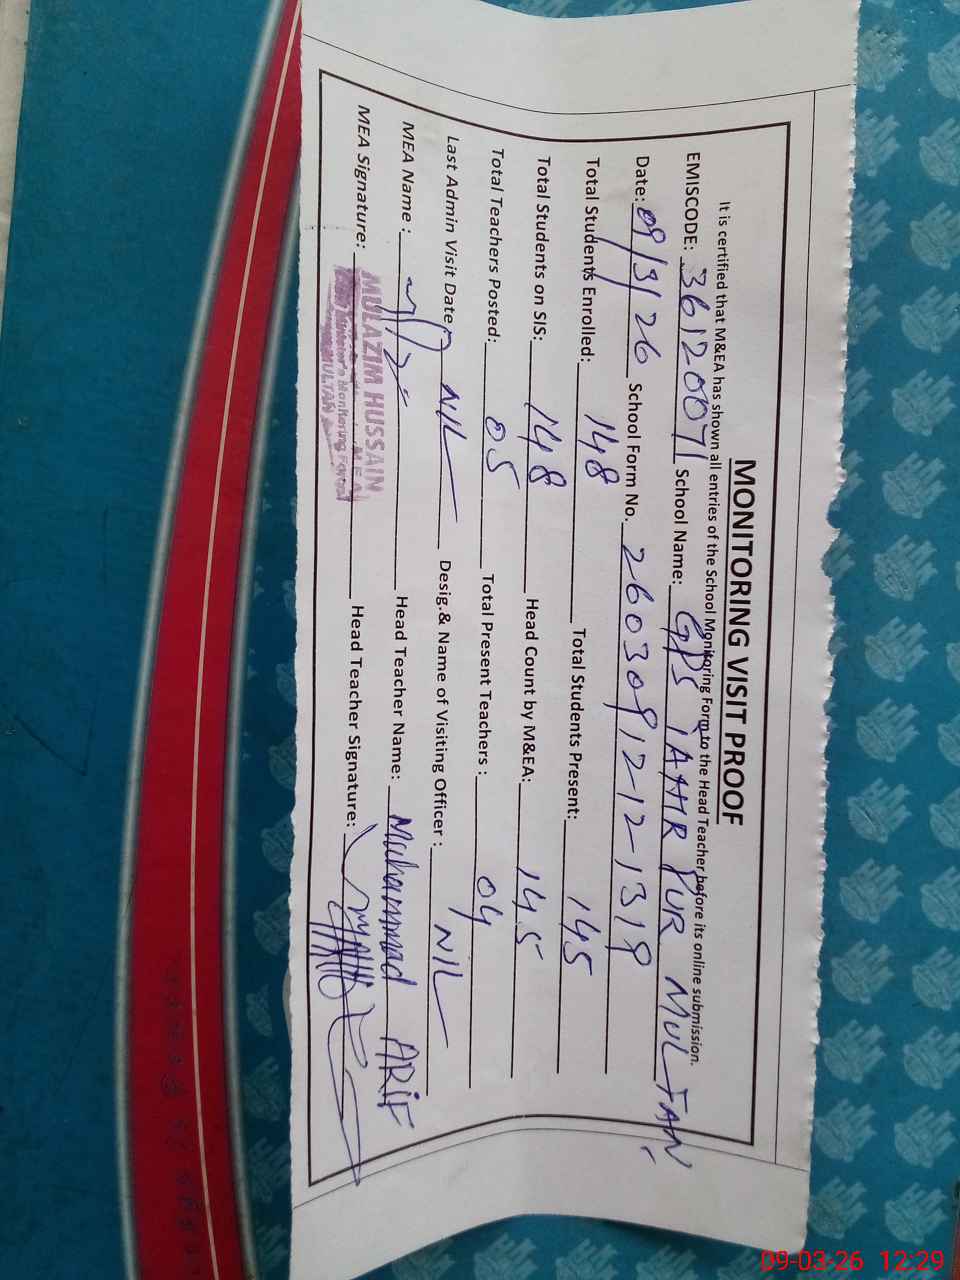 MONITORING VISIT PROOF
It is certified that M&EA has shown all entries of the School Monitoring Form to the Head Teacher before its online submission.
EMISCODE: 36120071 School Name: GPS TAHIR PUR MULTAN
Date: 09/3/26 School Form No. 26030912121319
Total Students Enrolled: 148 Total Students Present: 145
Total Students on SIS: 148 Head Count by M&EA: 145
Total Teachers Posted: 05 Total Present Teachers : 04
Last Admin Visit Date: NIL Desig.& Name of Visiting Officer : NIL
MEA Name : Head Teacher Name: Muhammad ARiF
MEA Signature: Head Teacher Signature:
MULAZIM HUSSAIN
M E A
Monitoring Force
MULTAN
09-03-26 12:29